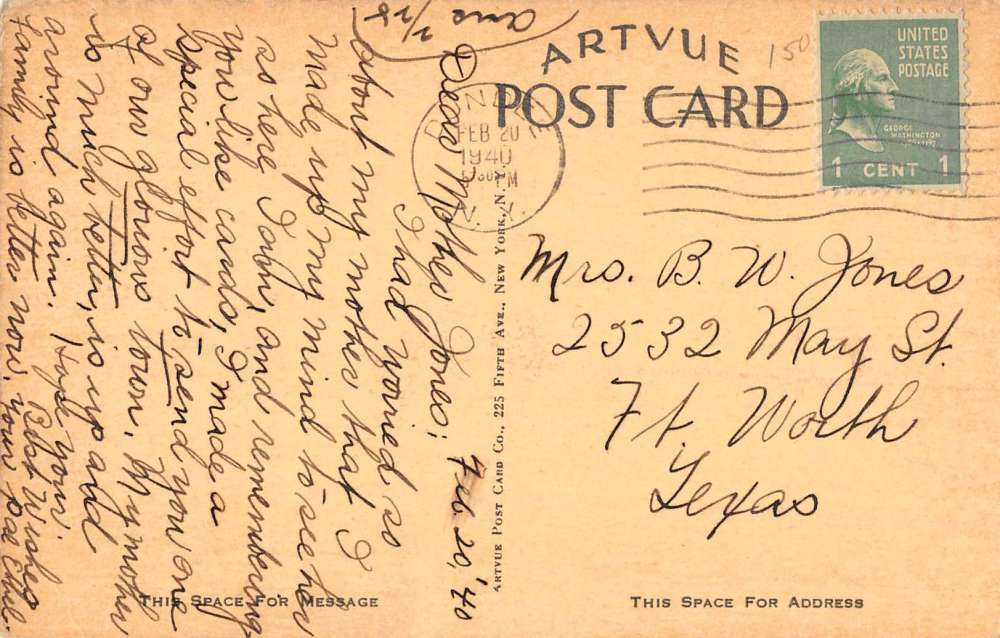 ans
2/25
ARTVUE
POST CARD
150
UNITED
STATES
POSTAGE
GEORGE
WASHINGTON
1 CENT 1
FEB 20
1940
PM
N. Y.
Feb. 20, '40
Dear Mother Jones:
I had worried so
about my mother that I
made up my mind to see her
so here I am, and remembering
you like cards, I made a
special effort to send you one
of our glorious town. My mother
is much better, is up and
around again. Hope your
family is better now.
Best Wishes
your pal Ethel.
ARTVUE POST CARD CO., 225 FIFTH AVE., NEW YORK, N. Y.
Mrs. B. W. Jones
2532 May St.
Ft. Worth
Texas
THIS SPACE FOR MESSAGE
THIS SPACE FOR ADDRESS